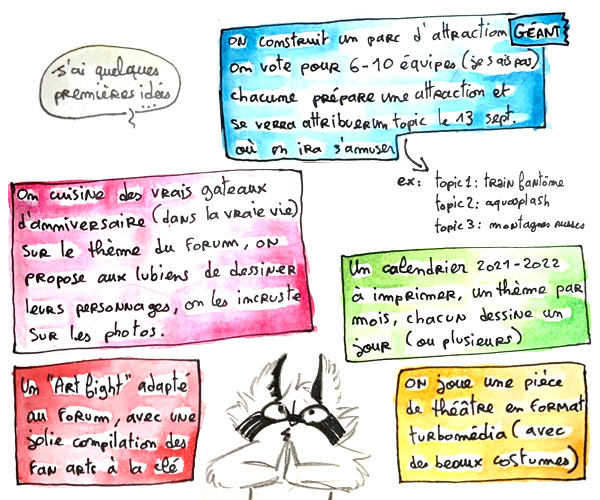 J'ai quelques
premières idées
...
On construit un parc d'attraction GÉANT
On vote pour 6-10 équipes (je sais pas)
chacune prépare une attraction et
se verra attribuer un topic le 13 sept.
où on ira s'amuser
ex: topic 1: train fantôme
topic 2: aquasplash
topic 3: montagnes russes
On cuisine des vrais gateaux
d'anniversaire (dans la vraie vie)
sur le thème du Forum, on
propose aux lubiens de dessiner
leurs personnages, on les incruste
sur les photos.
Un calendrier 2021-2022
à imprimer, un thème par
mois, chacun dessine un
jour (ou plusieurs)
Un "Art fight" adapté
au Forum, avec une
jolie compilation des
fan arts à la clé
On joue une pièce
de théâtre en format
turbomédia (avec
des beaux costumes)